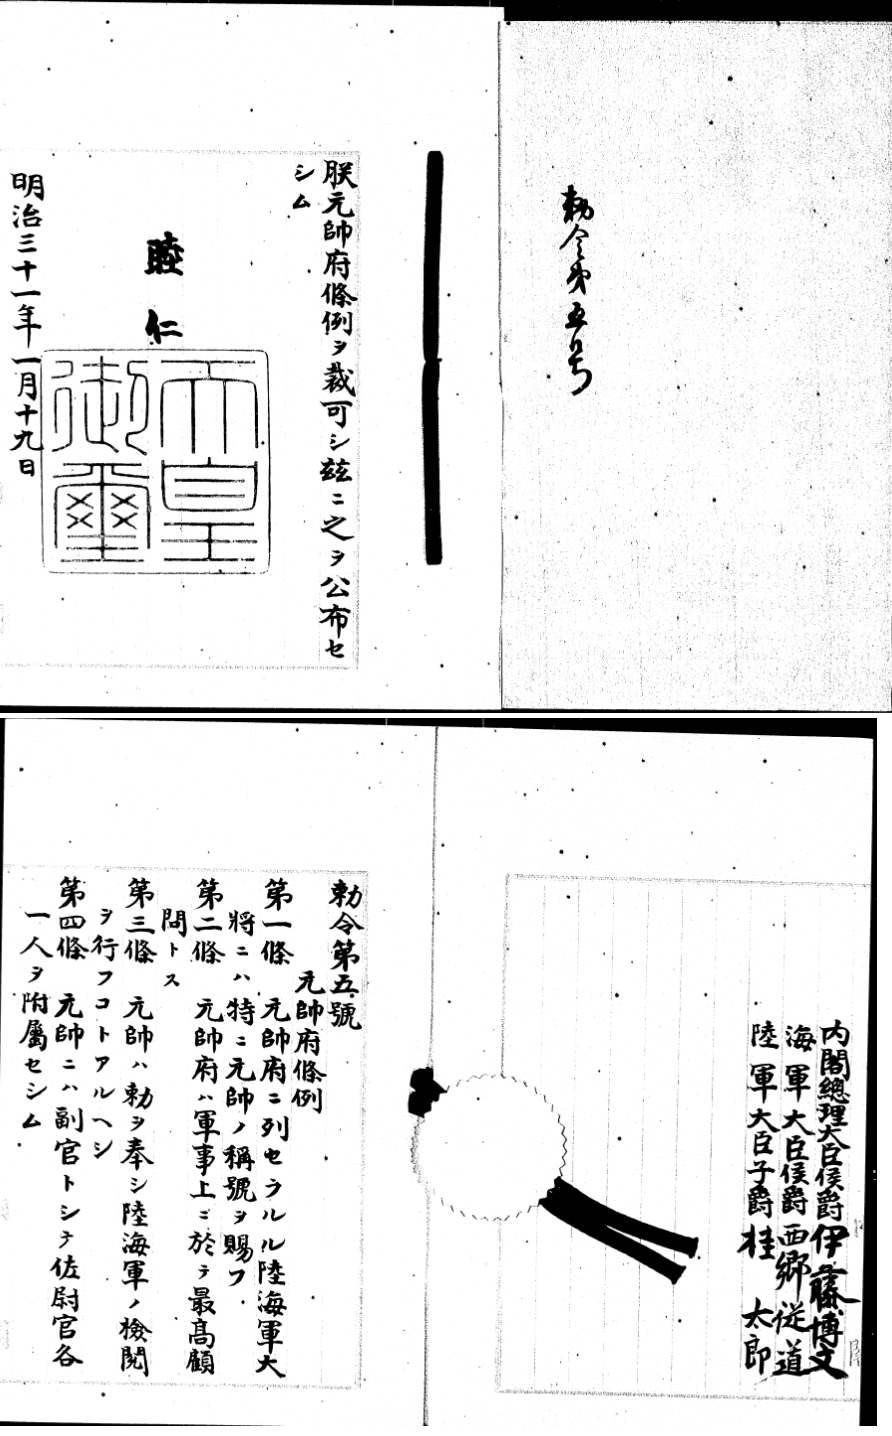 勅令第五号
朕元帥府條例ヲ裁可シ玆ニ之ヲ公布セ
シム
睦仁
天皇
御璽
明治三十一年一月十九日
内閣總理大臣侯爵伊藤博文
海軍大臣侯爵西郷従道
陸軍大臣子爵桂太郎
勅令第五號
元帥府條例
第一條 元帥府ニ列セラルル陸海軍大
將ニハ特ニ元帥ノ稱號ヲ賜フ
第二條 元帥府ハ軍事上ニ於テ最高顧
問トス
第三條 元帥ハ勅ヲ奉シ陸海軍ノ檢閲
ヲ行フコトアルヘシ
第四條 元帥ニハ副官トシテ佐尉官各
一人ヲ附屬セシム